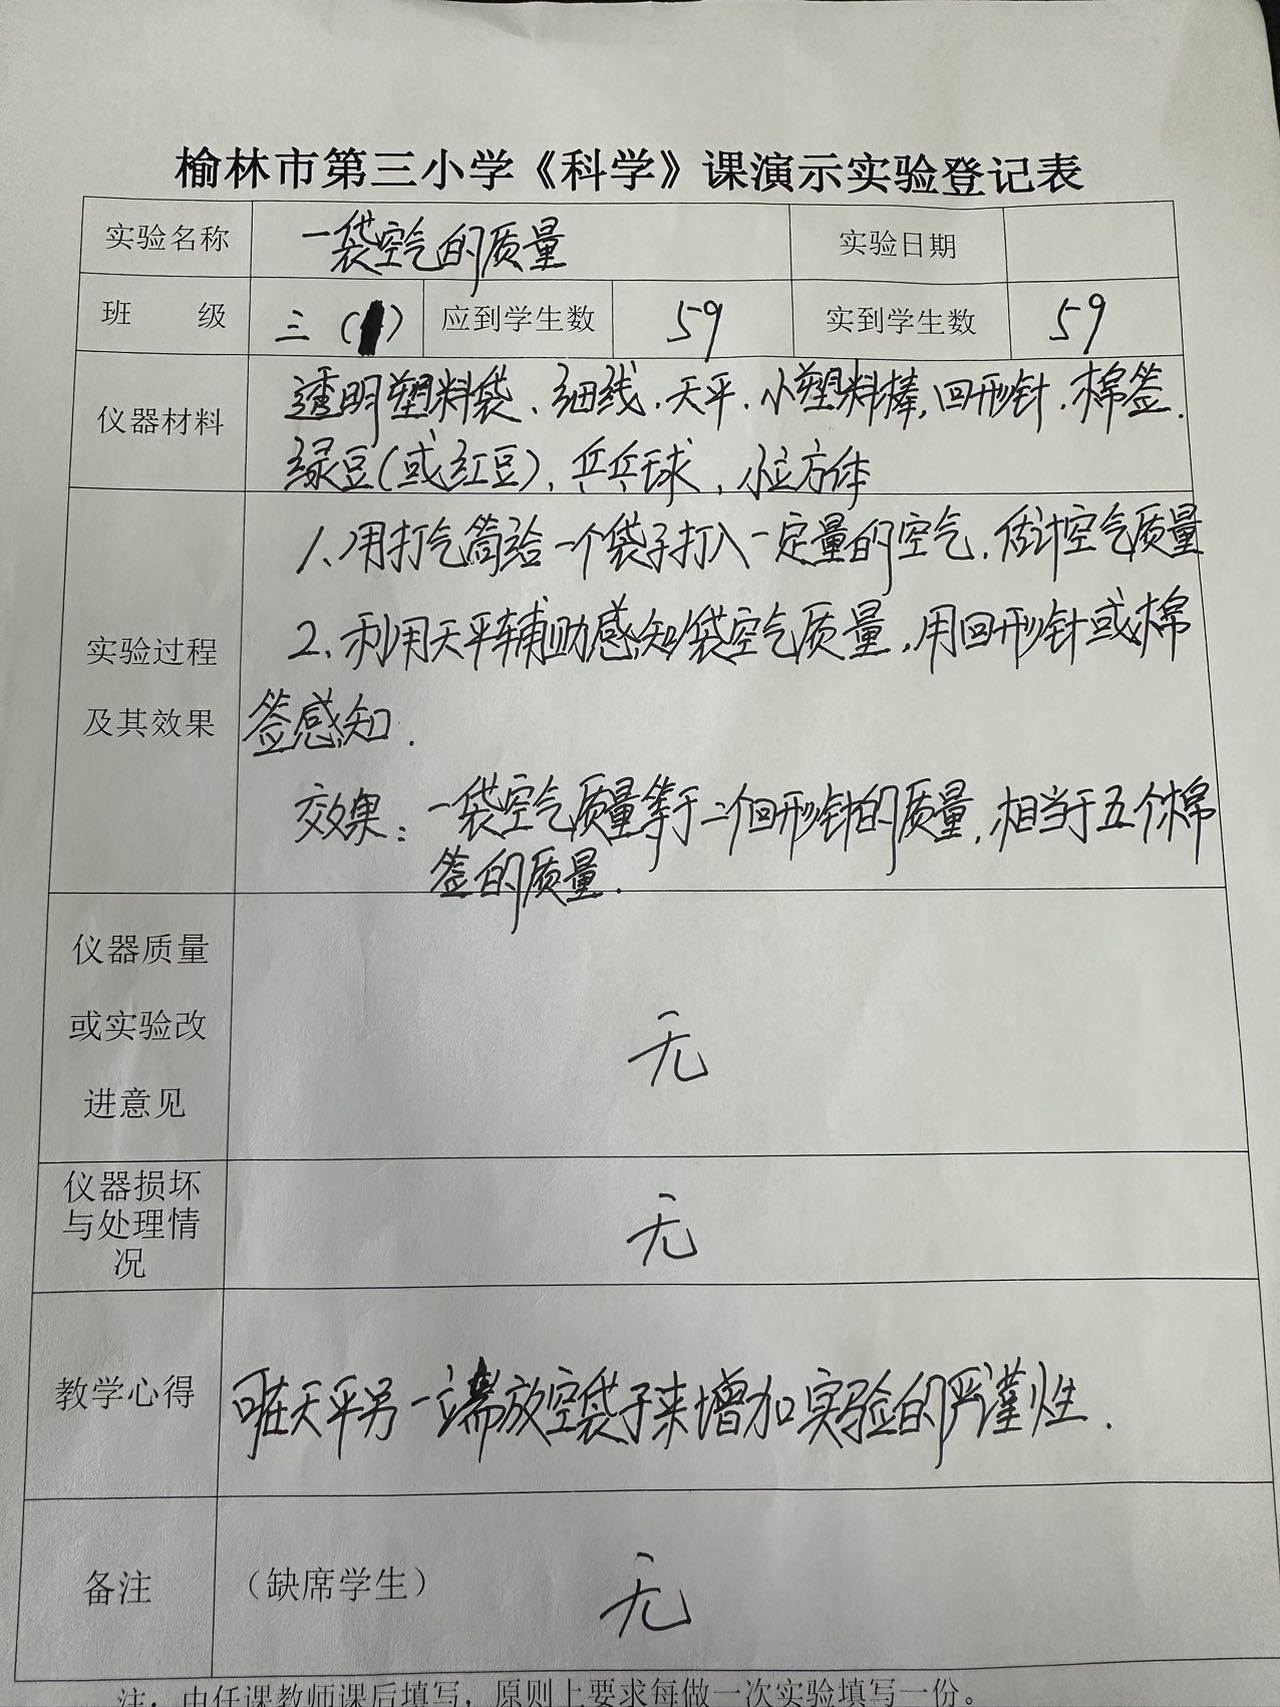 榆林市第三小学《科学》课演示实验登记表
实验名称 一袋空气的质量 实验日期
班 级 三( ) 应到学生数 59 实到学生数 59
仪器材料
透明塑料袋、细线、天平、小塑料棒,回形针、棉签、
绿豆(或红豆)、乒乓球、小立方体
实验过程
及其效果
1、用打气筒给一个袋子打入一定量的空气,估计空气质量
2、利用天平辅助感知袋空气质量,用回形针或棉
签感知.
效果:一袋空气质量等于二个回形针的质量,相当于五个棉
签的质量.
仪器质量
或实验改
进意见
无
仪器损坏
与处理情
况
无
教学心得
可在天平另一端放空袋子来增加实验的严谨性.
备注 (缺席学生) 无
注:由任课教师课后填写,原则上要求每做一次实验填写一份。